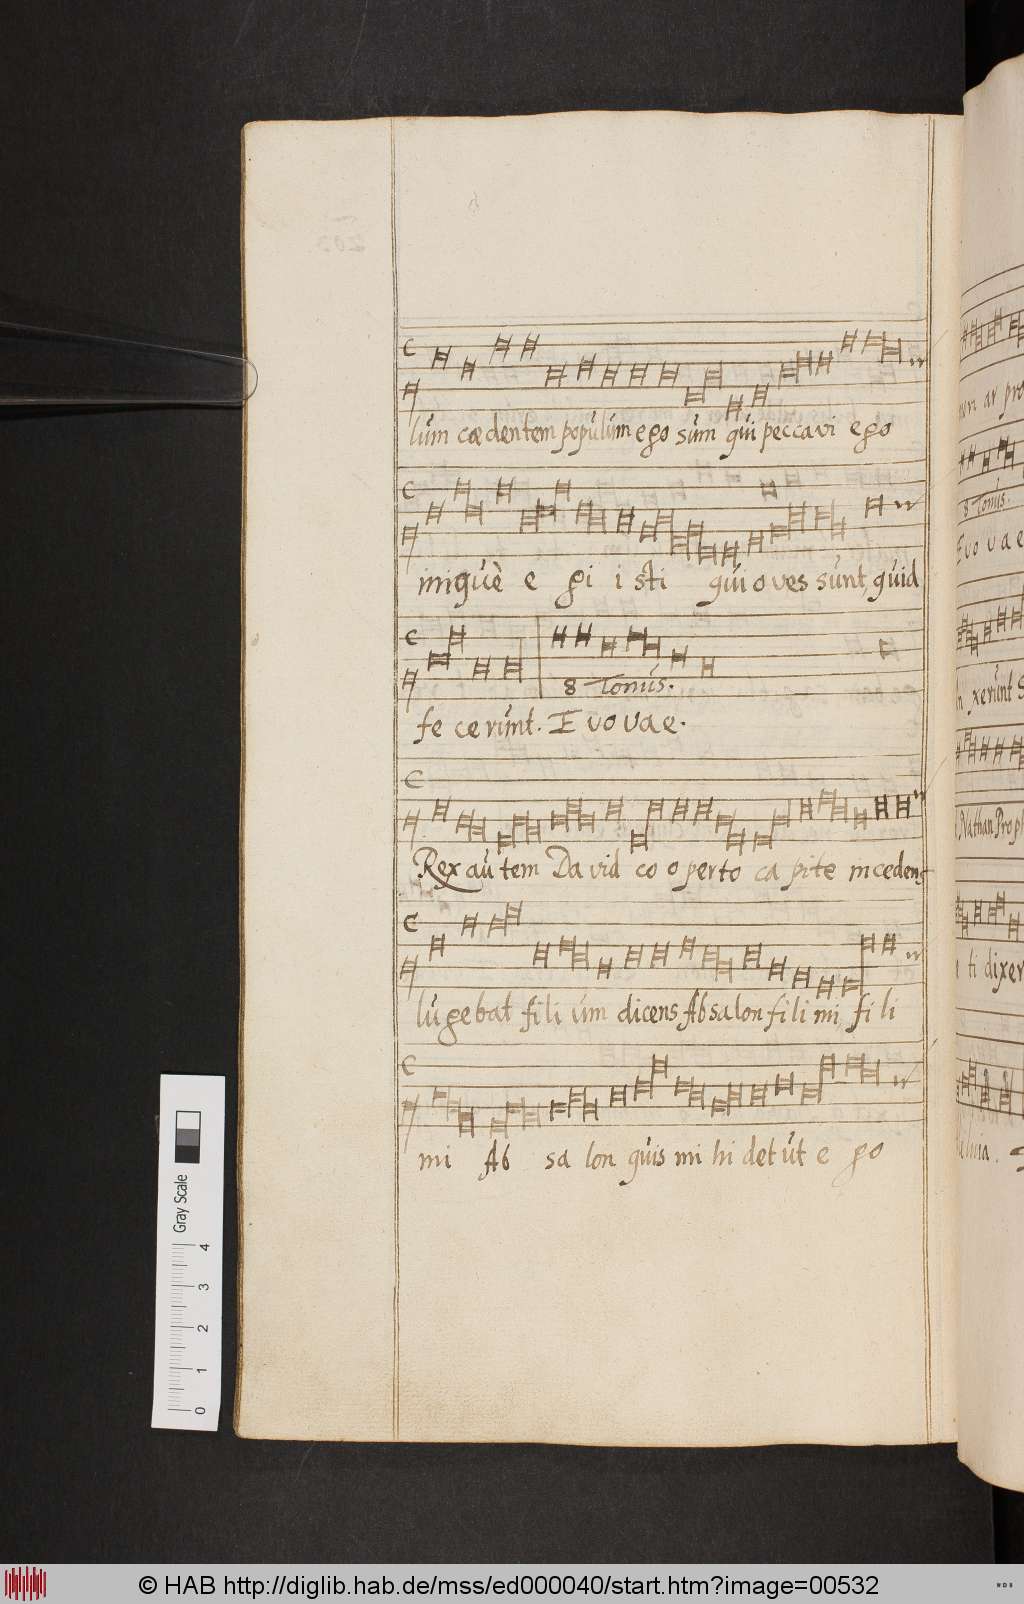 lum cædentem populum ego sum qui peccavi ego
iniquè e gi isti qui oves sunt, quid
8 Tonus.
fe cerunt. E vo vae.
Rex au tem Da vid co o perto ca pite incedens
lugebat fili um dicens Absalon fili mi fi li
mi Ab sa lon quis mi hi det ut e go
ar pro
8 Tonus.
E vo v a e
xerunt
Nathan Prop
ti dixer
luia.
Gray Scale
4
3
2
1
0
© HAB http://diglib.hab.de/mss/ed000040/start.htm?image=00532